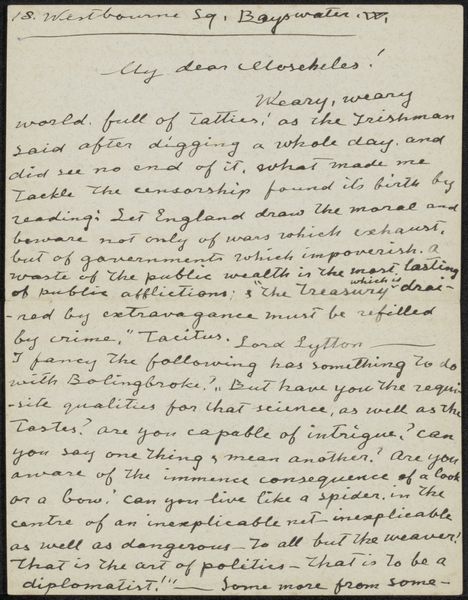 18. Westbourne Sq. Bayswater. W.
My dear Moscheles!
Weary, weary
world. full of Tatties! as the Irishman
said after digging a whole day. and
did see no end of it. what made me
Tackle the censorship found its birth by
reading: Let England draw the moral and
beware not only of wars which exhaust.
but of governments which impoverish. a
waste of the public wealth is the most lasting
of public afflictions; & "the Treasury which is drai-
-ned by extravagance must be refilled
by crime," Tacitus. Lord Lytton —
I fancy the following has something to do
with Bolingbroke. "But have you the requi-
-site qualities for that science, as well as the
Tastes? are you capable of intrigue? can
you say one thing & mean another? Are you
aware of the immence consequence of a look
or a bow! can you live like a spider. in the
centre of an inexplicable net - inexplicable
as well as dangerous - to all but the weaver!
That is the art of politics - that is to be a
diplomatist!" — Some more from some-